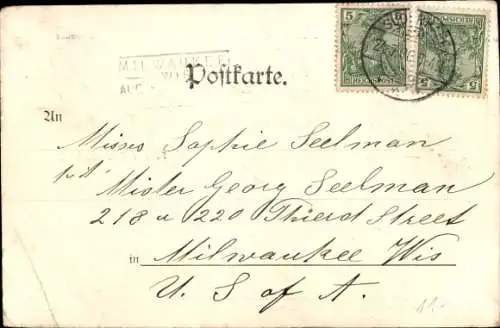 MILWAUKEE
WIS
AUG
Postkarte.
5 5
REICHSPOST REICHSPOST
An
Misses Sophie Seelman
Mister Georg Seelman
218 u 220 Thierd Street
in Milwaukee Wis
U. S of A.